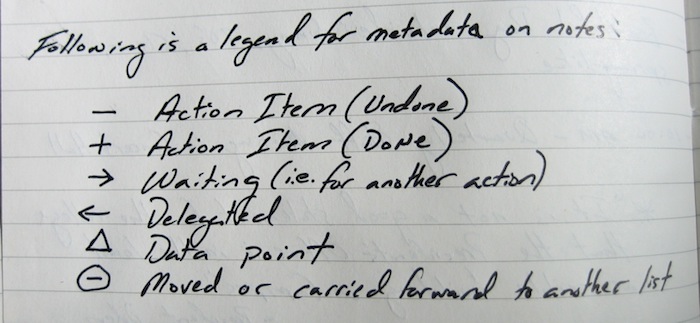 Following is a legend for metadata on notes:
– Action Item (Undone)
+ Action Item (Done)
→ Waiting (i.e. for another action)
← Delegated
△ Data point
⊖ Moved or carried forward to another list